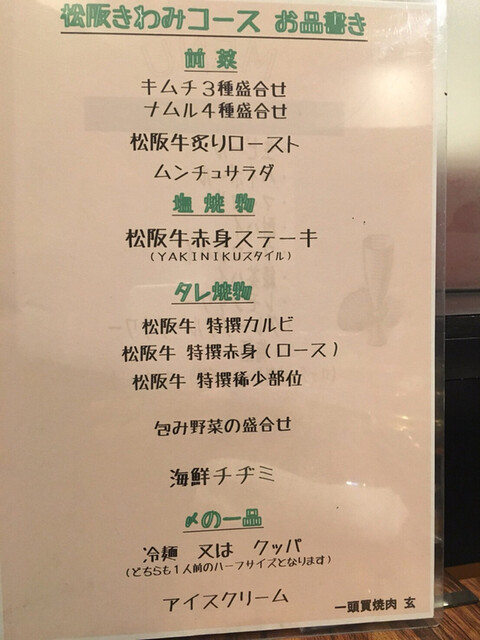 松阪きわみコース お品書き
前菜
キムチ3種盛合せ
ナムル4種盛合せ
松阪牛炙りロースト
ムンチュサラダ
塩焼物
松阪牛赤身ステーキ
(YAKINIKUスタイル)
タレ焼物
松阪牛 特撰カルビ
松阪牛 特撰赤身(ロース)
松阪牛 特撰稀少部位
包み野菜の盛合せ
海鮮チヂミ
〆の一品
冷麺 又は クッパ
(どちらも1人前のハーフサイズとなります)
アイスクリーム
一頭買焼肉 玄